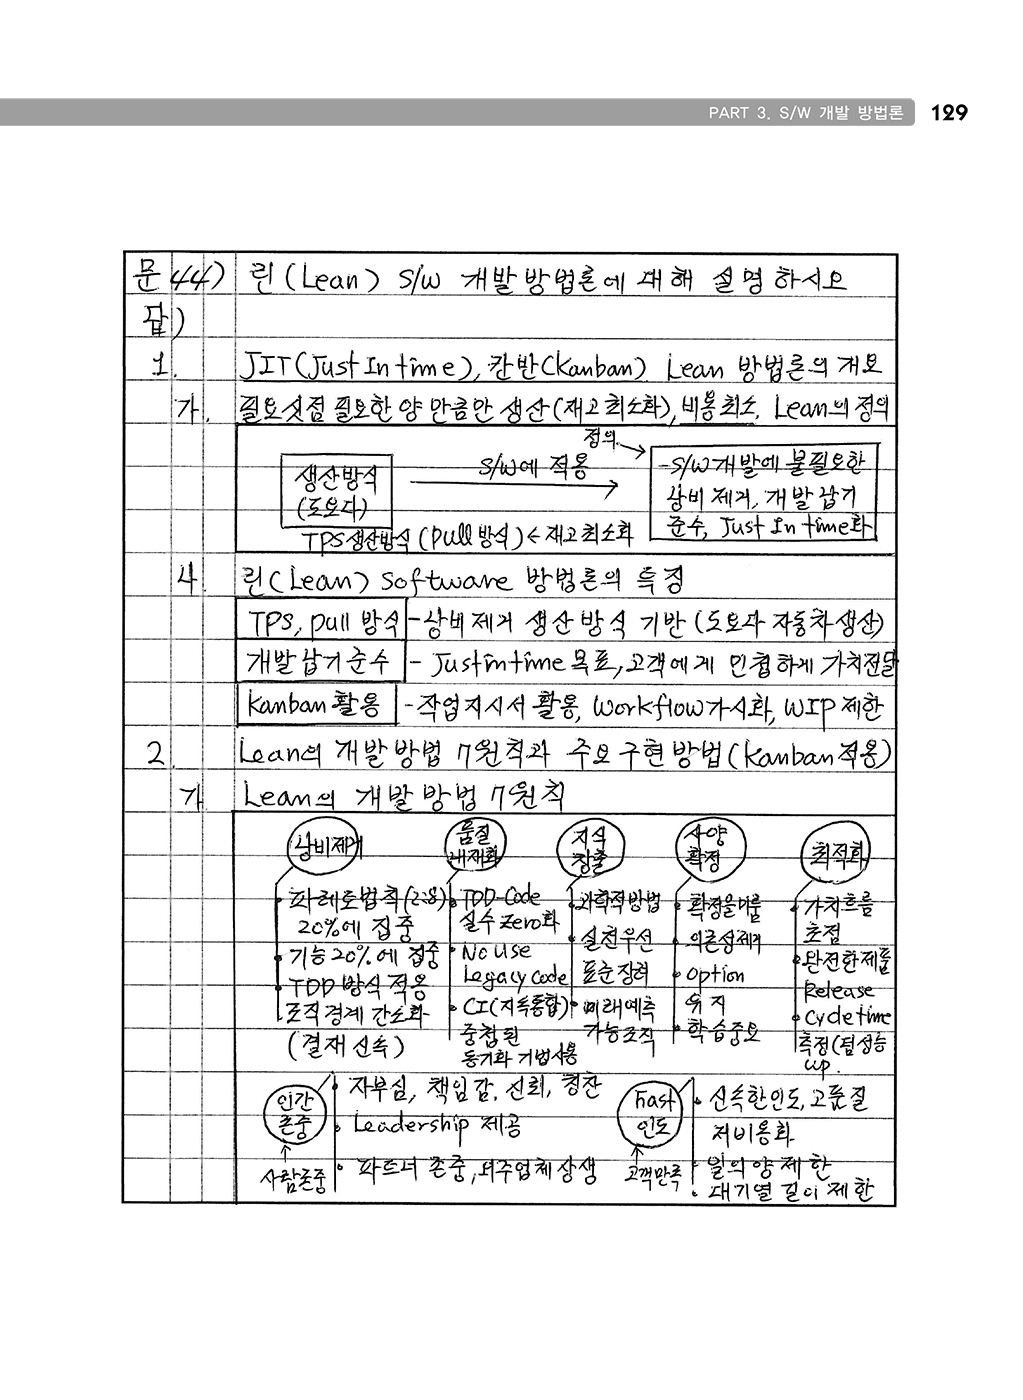 PART 3. S/W 개발 방법론 129
문 44) 린(Lean) S/W 개발방법론에 대해 설명하시오
답)
1. JIT(Just In time), 칸반(Kanban) Lean 방법론의 개요
가. 필요시점 필요한 양 만큼만 생산(재고최소화), 비용최소. Lean의 정의
생산방식
(도요다)
S/W에 적용
정의
-S/W개발에 불필요한
낭비 제거, 개발납기
준수, Just In time화
TPS생산방식(Pull방식)←재고최소화
나. 린(Lean) Software 방법론의 특징
TPS, pull 방식 -낭비제거 생산방식 기반(도요다 자동차생산)
개발납기준수 - Justintime목표, 고객에게 민첩하게 가치전달
Kanban활용 -작업지시서 활용, Workflow가시화, WIP제한
2. Lean의 개발방법 7원칙과 주요구현방법(Kanban적용)
가 Lean의 개발방법 7원칙
낭비제거
파레토법칙(2:8)
20%에 집중
기능20%에 집중
TDD 방식 적용
조직경계 간소화
(결재신속)
품질
내재화
TDD-Code
실수 Zero화
No use
Legacy code
CI(지속통합)
중첩된
동기화 기법사용
지식
창출
과학적방법
실천우선
표준장려
미래예측
가능조직
사양
확정
확정을미룸
의존성제거
option
유지
학습중요
최적화
가치흐름
초점
완전한제품
Release
Cycletime
측정(점성능
up.
인간
존중
사람존중
자부심, 책임감, 신뢰, 칭찬
Leadership 제공
파트너 존중, 외주업체상생
Fast
인도
고객만족
신속한인도, 고품질
저비용화
일의양제한
대기열 길이 제한